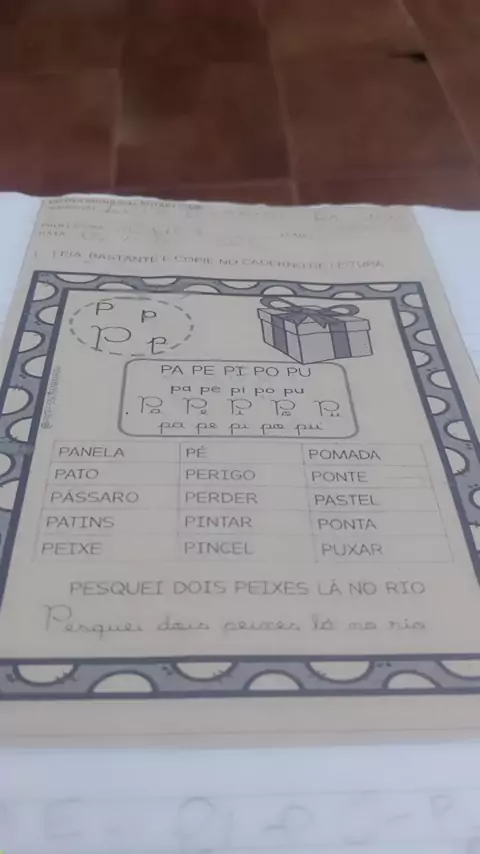 LEIA BASTANTE E COPIE NO CADERNO DE LEITURA
P p
P p
PA PE PI PO PU
pa pe pi po pu
Pa Pe Pi Po Pu
pa pe pi po pu
PANELA PÉ POMADA
PATO PERIGO PONTE
PÁSSARO PERDER PASTEL
PATINS PINTAR PONTA
PEIXE PINCEL PUXAR
PESQUEI DOIS PEIXES LÁ NO RIO
Pesquei dois peixes lá no rio